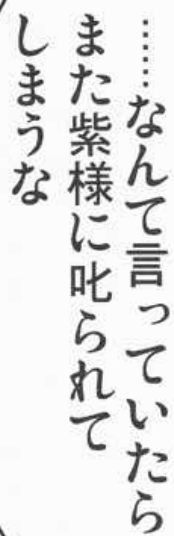 ……なんて言っていたら
また紫様に叱られて
しまうな